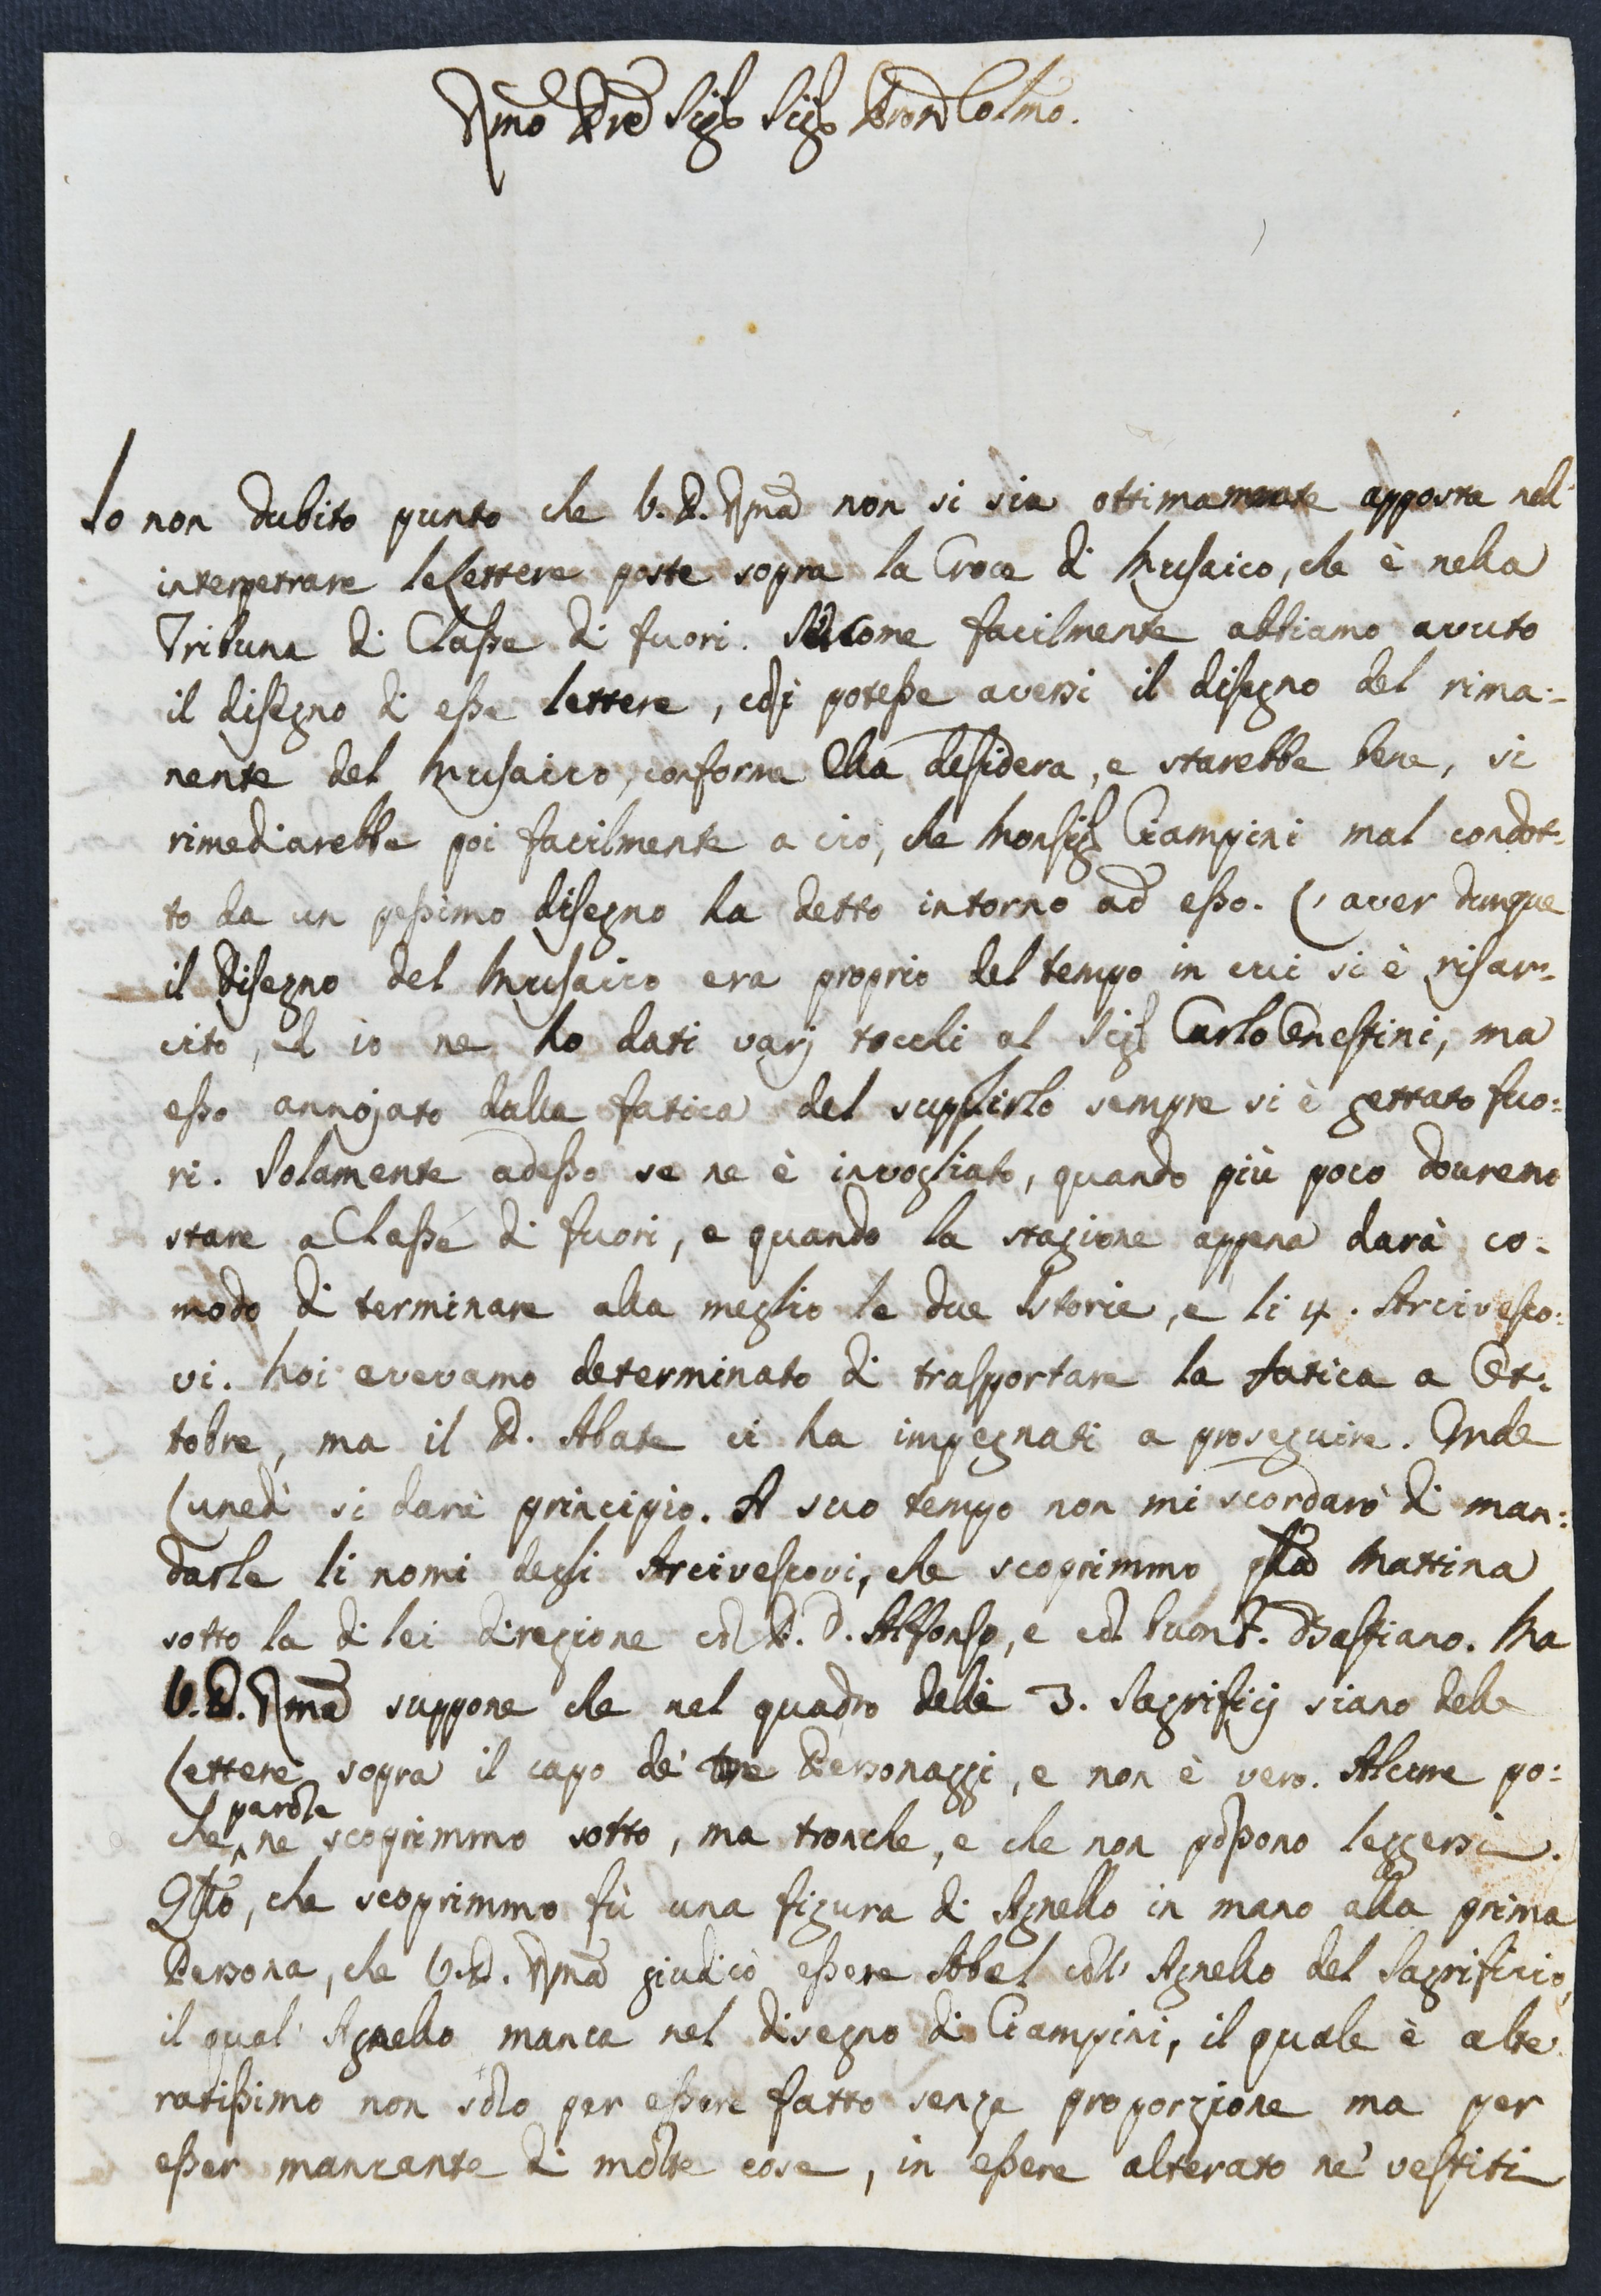 Rmo Pre Sigr Sigr Pron Colmo.
Io non dubito punto che V. P. Rma non si sia ottimamente apposta nell'
interpetrare le Lettere poste sopra la Croce di Musaico, che è nella
Tribuna di Classe di fuori. Siccome facilmente abbiamo avuto
il disegno di esse lettere, così potesse aversi il disegno del rima-
nente del Musaico, conforme Ella desidera, e starebbe bene, si
rimediarebbe poi facilmente a ciò, che Monsigr Ciampini mal condot-
to da un pessimo disegno ha detto intorno ad esso. L'aver dunque
il Disegno del Musaico era proprio del tempo in cui si è risar-
cito, ed io ne ho dati varj tocchi al Sigr Carlo Enestini, ma
esso annojato dalla fatica del supplirlo sempre si è gettato fuo-
ri. Solamente adesso se ne è invogliato, quando più poco doureno
stare a Classe di fuori, e quando la stagione appena darà co-
modo di terminare alla meglio le due Istorie, e li 4. Arcivesco-
vi. Noi avevamo determinato di trasportare la fatica a Ot-
tobre, ma il P. Abate ci ha impegnati a proseguire. Onde
Lunedì si darà principio. A suo tempo non mi scordarò di man-
darle li nomi degli Arcivescovi, che scoprimmo qlla Mattina
sotto la di lei direzione col P. D. Alfonso, e col buon F. Bastiano. Ma
V. P. Rma suppone che nel quadro delli 3. Sagrificj siano delle
Lettere sopra il capo de' tre Personaggi, e non è vero. Alcune po-
che parole ne scoprimmo sotto, ma tronche, e che non possono leggersi.
Qllo, che scoprimmo fù una figura di Agnello in mano alla prima
Persona, che V. P. Rma giudicò essere Abel coll' Agnello del Sagrificio,
il qual' Agnello manca nel disegno di Ciampini, il quale è alte-
ratissimo non solo per essere fatto senza proporzione ma per
esser mancante di molte cose, in essere alterato ne' vestiti